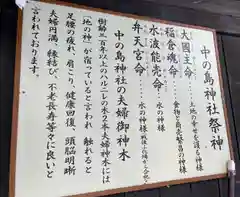 中の島神社祭神
大國主命……土地の幸せを護る神様
稲倉魂命……食物と商売繁昌の神様
水波能売命……水の神様
弁天宮……水の神様
中の島神社の夫婦御神木
樹齢三百年以上のハルニレの木2本夫婦神木には
(地の神)が宿っていると言われ 触れると
足腰の疲れ、肩こり、健康回復、頭脳明晰
夫婦円満、縁結び、不老長寿等々に良いと
言われております。